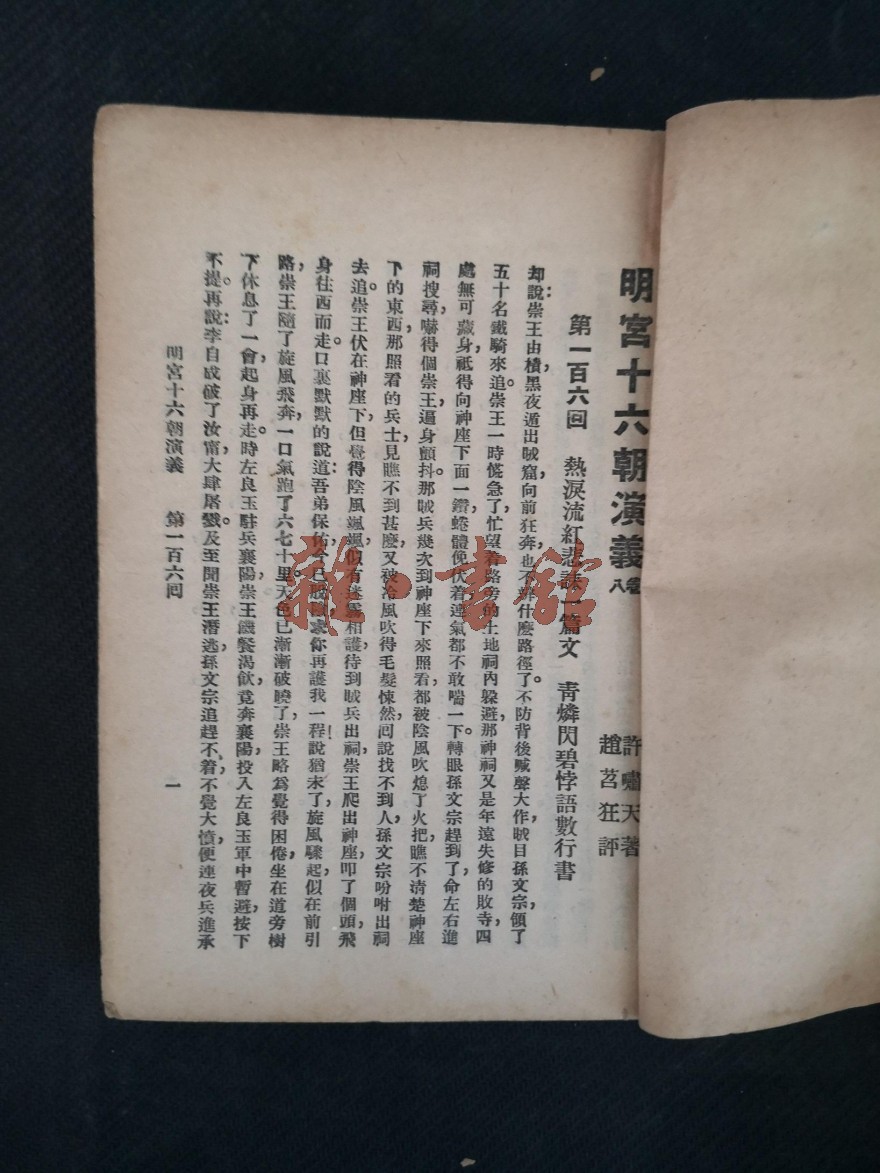 明宮十六朝演義 卷八
許嘯天著
趙苕狂評
第一百六回 熱淚流紅悲誄一篇文 青燐閃碧悖語數行書
却說:崇王由積黑夜遁出賊窟,向前狂奔,也不辨什麽路徑了。不防背後喊聲大作,賊目孫文宗,領了
五十名鐵騎來追。崇王一時慌急了,忙望着路旁的土地祠內躲避,那神祠又是年遠失修的敗寺,四
處無可藏身,祇得向神座下面一鑽,蜷體俛伏着,連氣都不敢喘一下。轉眼孫文宗趕到了,命左右進
祠搜尋,嚇得個崇王遍身顫抖。那賊兵幾次到神座下來照看,都被陰風吹熄了火把,瞧不清楚神座
下的東西,那照看的兵士,見瞧不到甚麽,又被冷風吹得毛髮悚然,回說找不到人,孫文宗吩咐出祠
去追。崇王伏在神座下,但覺得陰風颯颯,似有迷霧相護,待到賊兵出祠,崇王爬出神座,叩了個頭,飛
身往西而走。口裏默默的說道:吾弟保佑,今已脫險,求你再護我一程!說猶未了,旋風驟起,似在前引
路,崇王隨了旋風飛奔,一口氣跑了六七十里。天色已漸漸破曉了,崇王略爲覺得困倦,坐在道旁樹
下休息了一會,起身再走。時左良玉駐兵襄陽,崇王饑餐渴飲,竟奔襄陽,投入左良玉軍中暫避,按下
不提。再說:李自成破了汝甯,大肆屠戮。及至聞崇王潛逃,孫文宗追趕不着,不覺大憤,便連夜兵進承
明宮十六朝演義 第一百六回 一
雜·書館